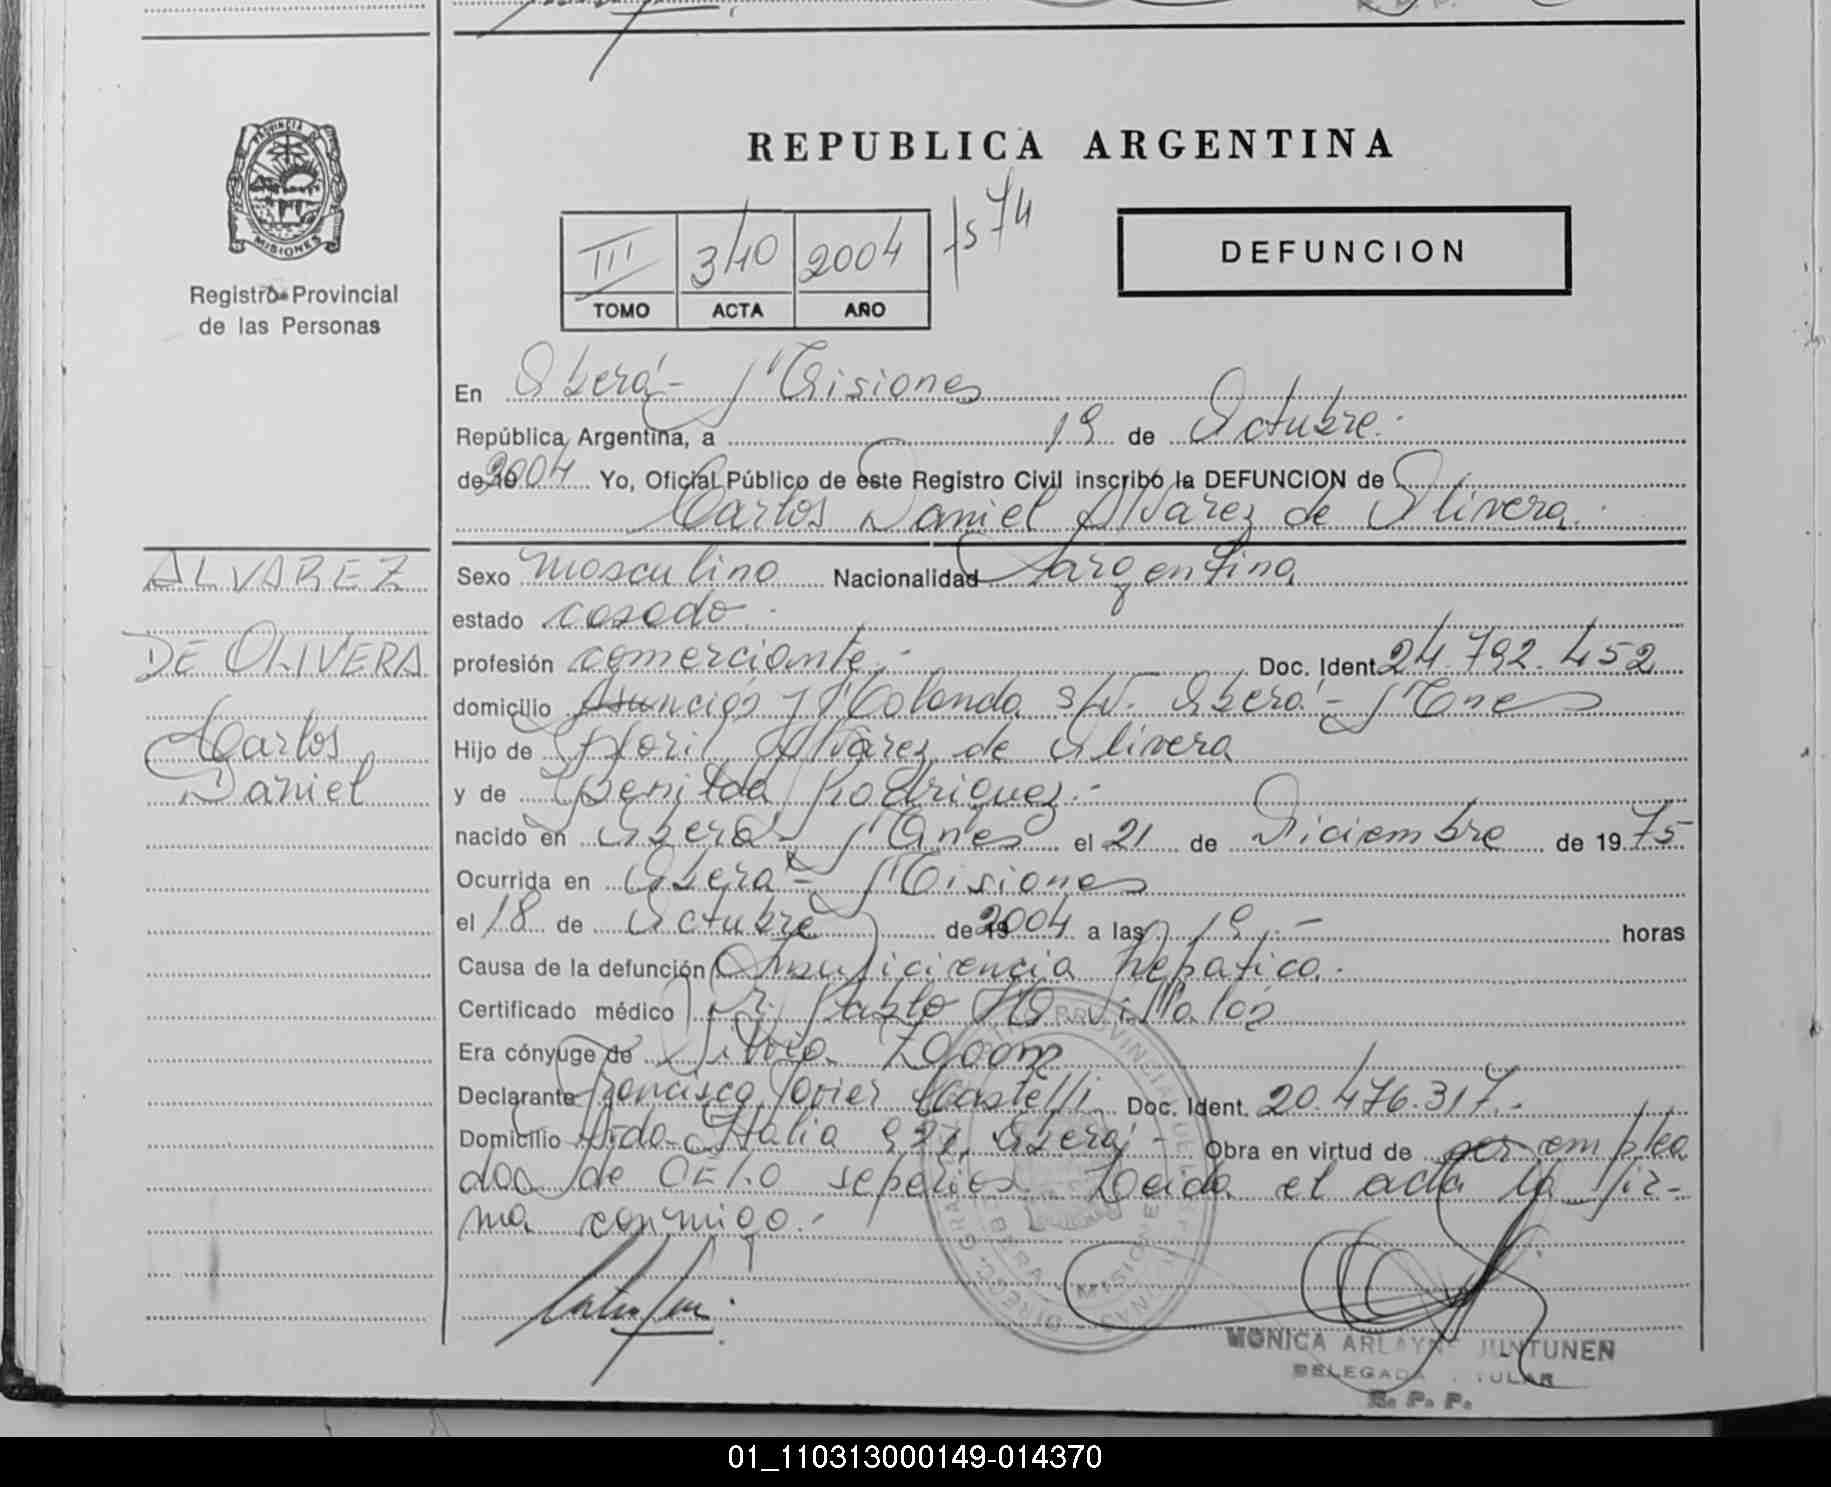 PROVINCIA DE
MISIONES
Registro Provincial
de las Personas
REPUBLICA ARGENTINA
III 340 2004 fs 74
TOMO ACTA AÑO
DEFUNCION
En Oberá - Misiones
República Argentina, a 19 de Octubre.-
de 2004 Yo, Oficial Público de este Registro Civil inscribo la DEFUNCION de
Carlos Daniel Alvarez de Olivera.-
ALVAREZ
DE OLIVERA
Carlos
Daniel
Sexo masculino Nacionalidad argentina
estado casado.-
profesión comerciante.- Doc. Ident. 24.792.452
domicilio Asunción y Holanda s/N. Oberá - Mnes
Hijo de Alvarez de Olivera
y de Benilda Rodriguez.-
nacido en Oberá - Mnes el 21 de Diciembre de 1975
Ocurrida en Oberá - Misiones
el 18 de Octubre de 2004 a las 19.- horas
Causa de la defunción Insuficiencia hepatica.-
Certificado médico Dr. Pablo Villalos
Era cónyuge de Silvia
Declarante Francisco Javier Castelli Doc. Ident. 20.476.317.-
Domicilio Avda. Italia 927, Oberá - Obra en virtud de ser emplea
do de sepelios. Leida el acta la fir-
ma conmigo.-
MONICA JUNTUNEN
DELEGADA TITULAR
R. P. P.
01_110313000149-014370